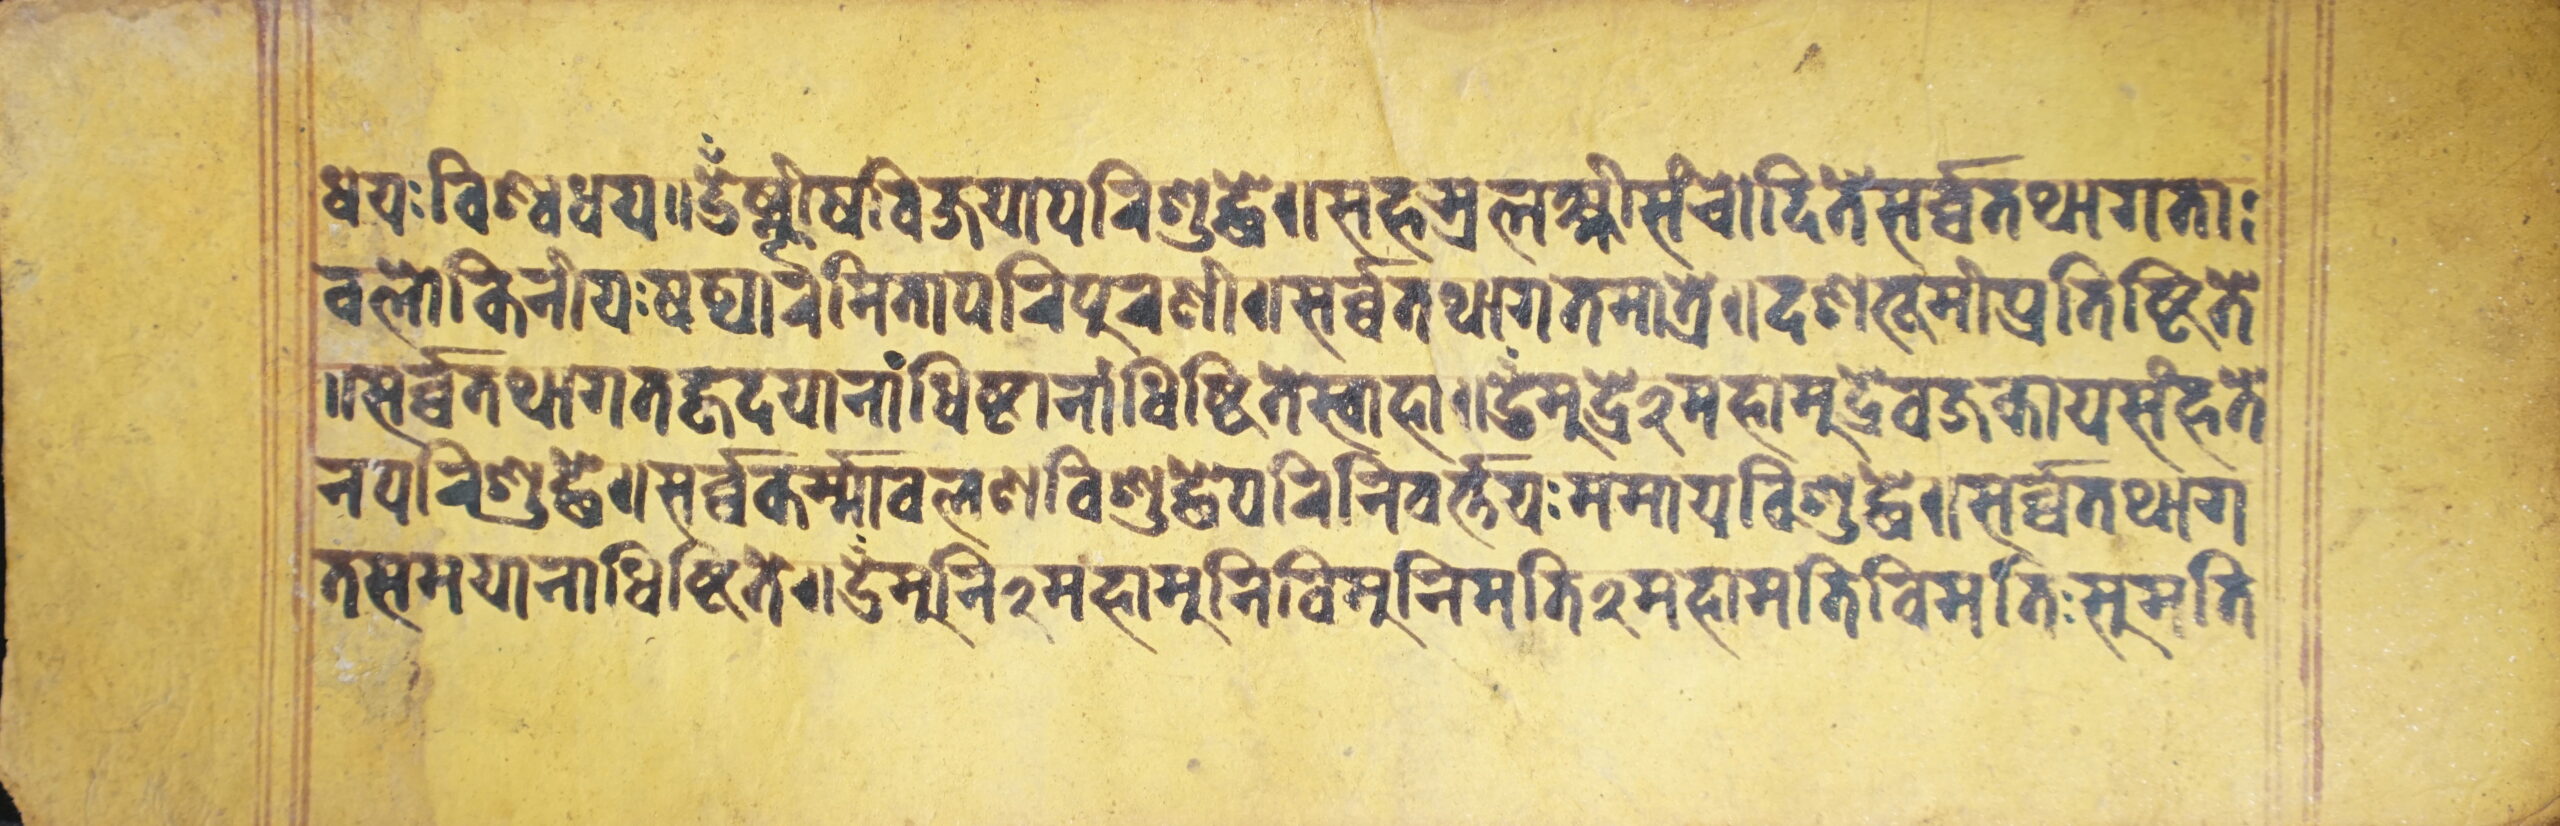 धयः विश्वधय॥ उँर्ष्णीषविजयापरिशुद्धे॥ सहस्रलक्ष्मीसंचोदिते सर्व्वतथागताः
वलोकिनीयः षट्पारंमितापरिपुरणी॥ सर्व्वतथागतमात्रे॥ दशभूमीप्रतिष्टिते
॥ सर्व्वतथागतहृदयानांधिष्टानांधिष्टितेस्वाहा॥ उँमुद्रे२महामुद्रेवज्रकायसंहते
नपरिशुद्धे॥ सर्व्वकर्म्मावलणविशुद्धेपरिनिवर्त्तयः ममायविशुद्धे॥ सर्व्वतथाग
तसमयानाधिष्टिते॥ उँमुनि२महामुनिविमुनिमति२महामतिविमतिः सुमति